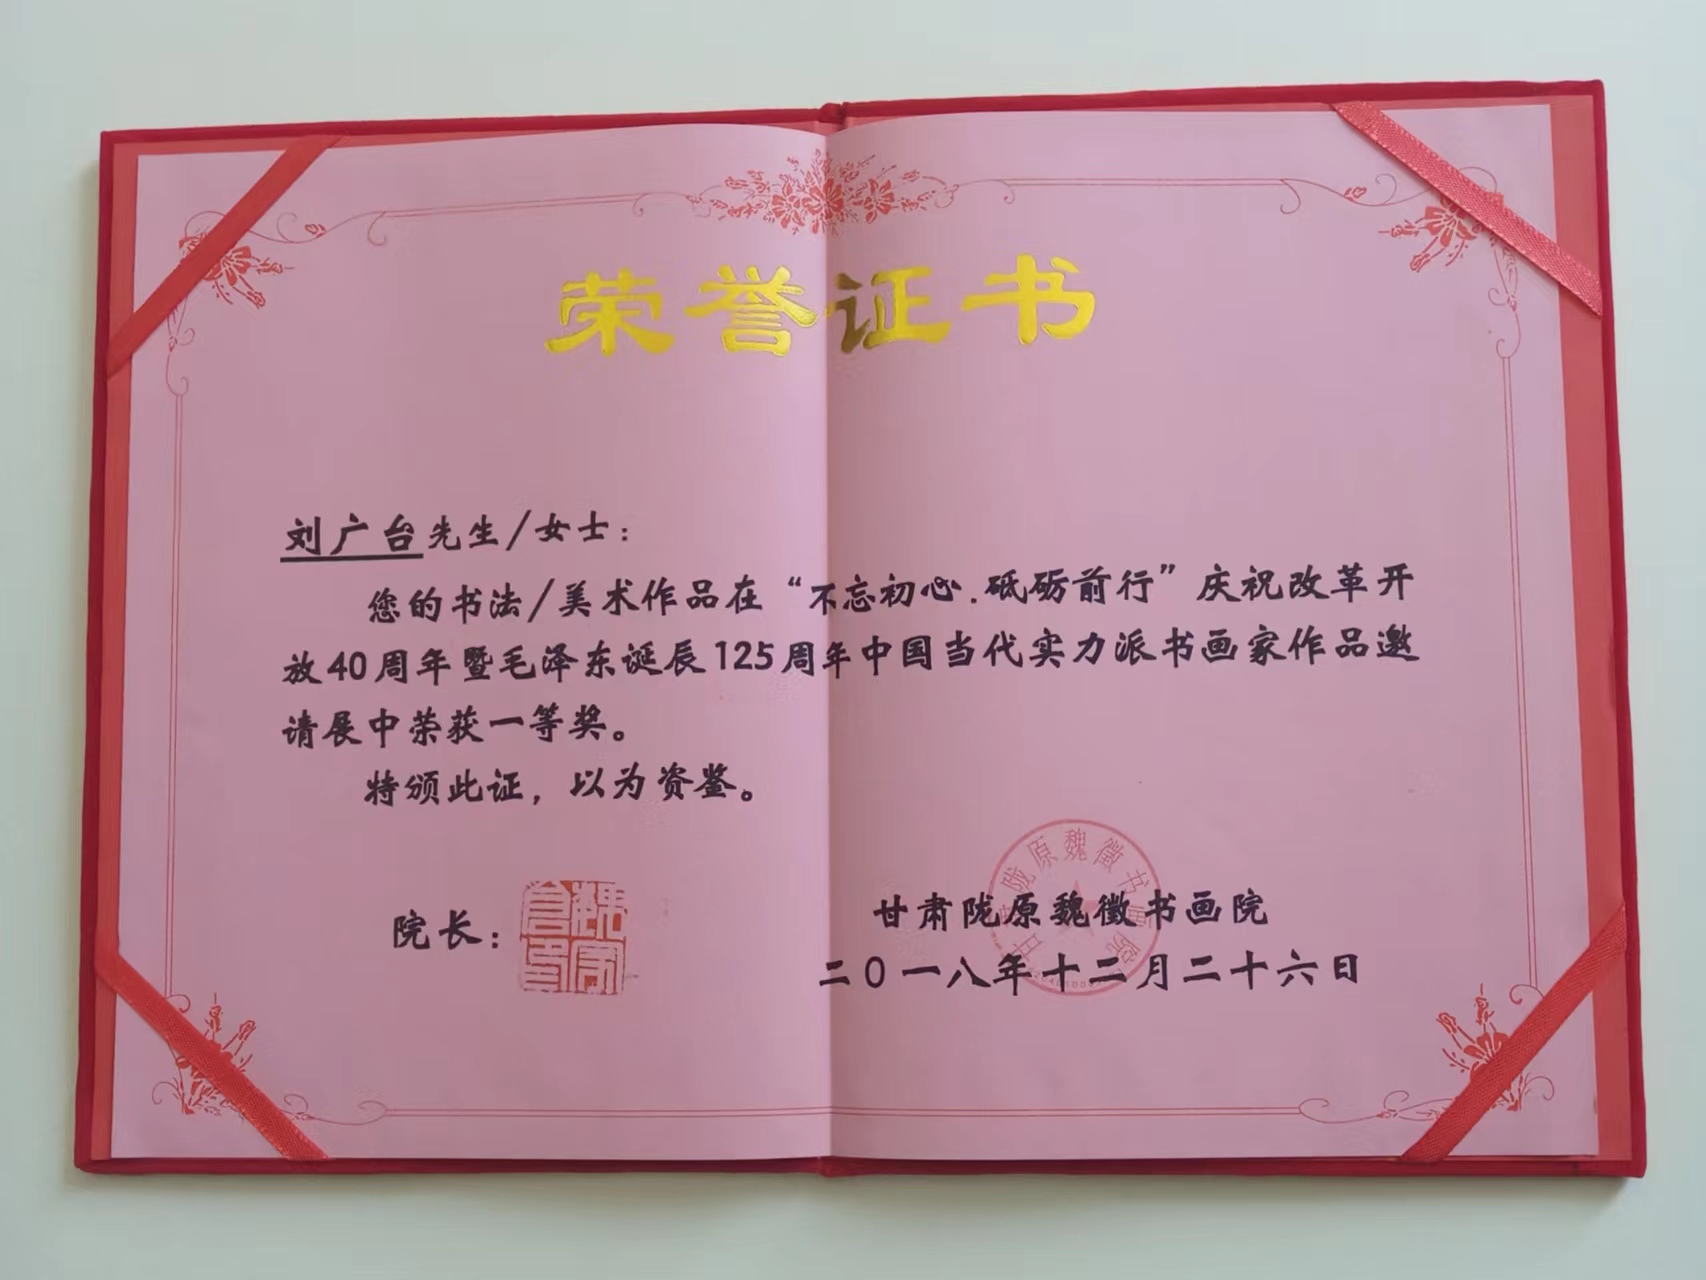 荣誉证书
刘广台先生/女士：
您的书法/美术作品在“不忘初心.砥砺前行”庆祝改革开
放40周年暨毛泽东诞辰125周年中国当代实力派书画家作品邀
请展中荣获一等奖。
特颁此证，以为资鉴。
院长：
甘肃陇原魏徵书画院
二〇一八年十二月二十六日
甘肃陇原魏徵书画院